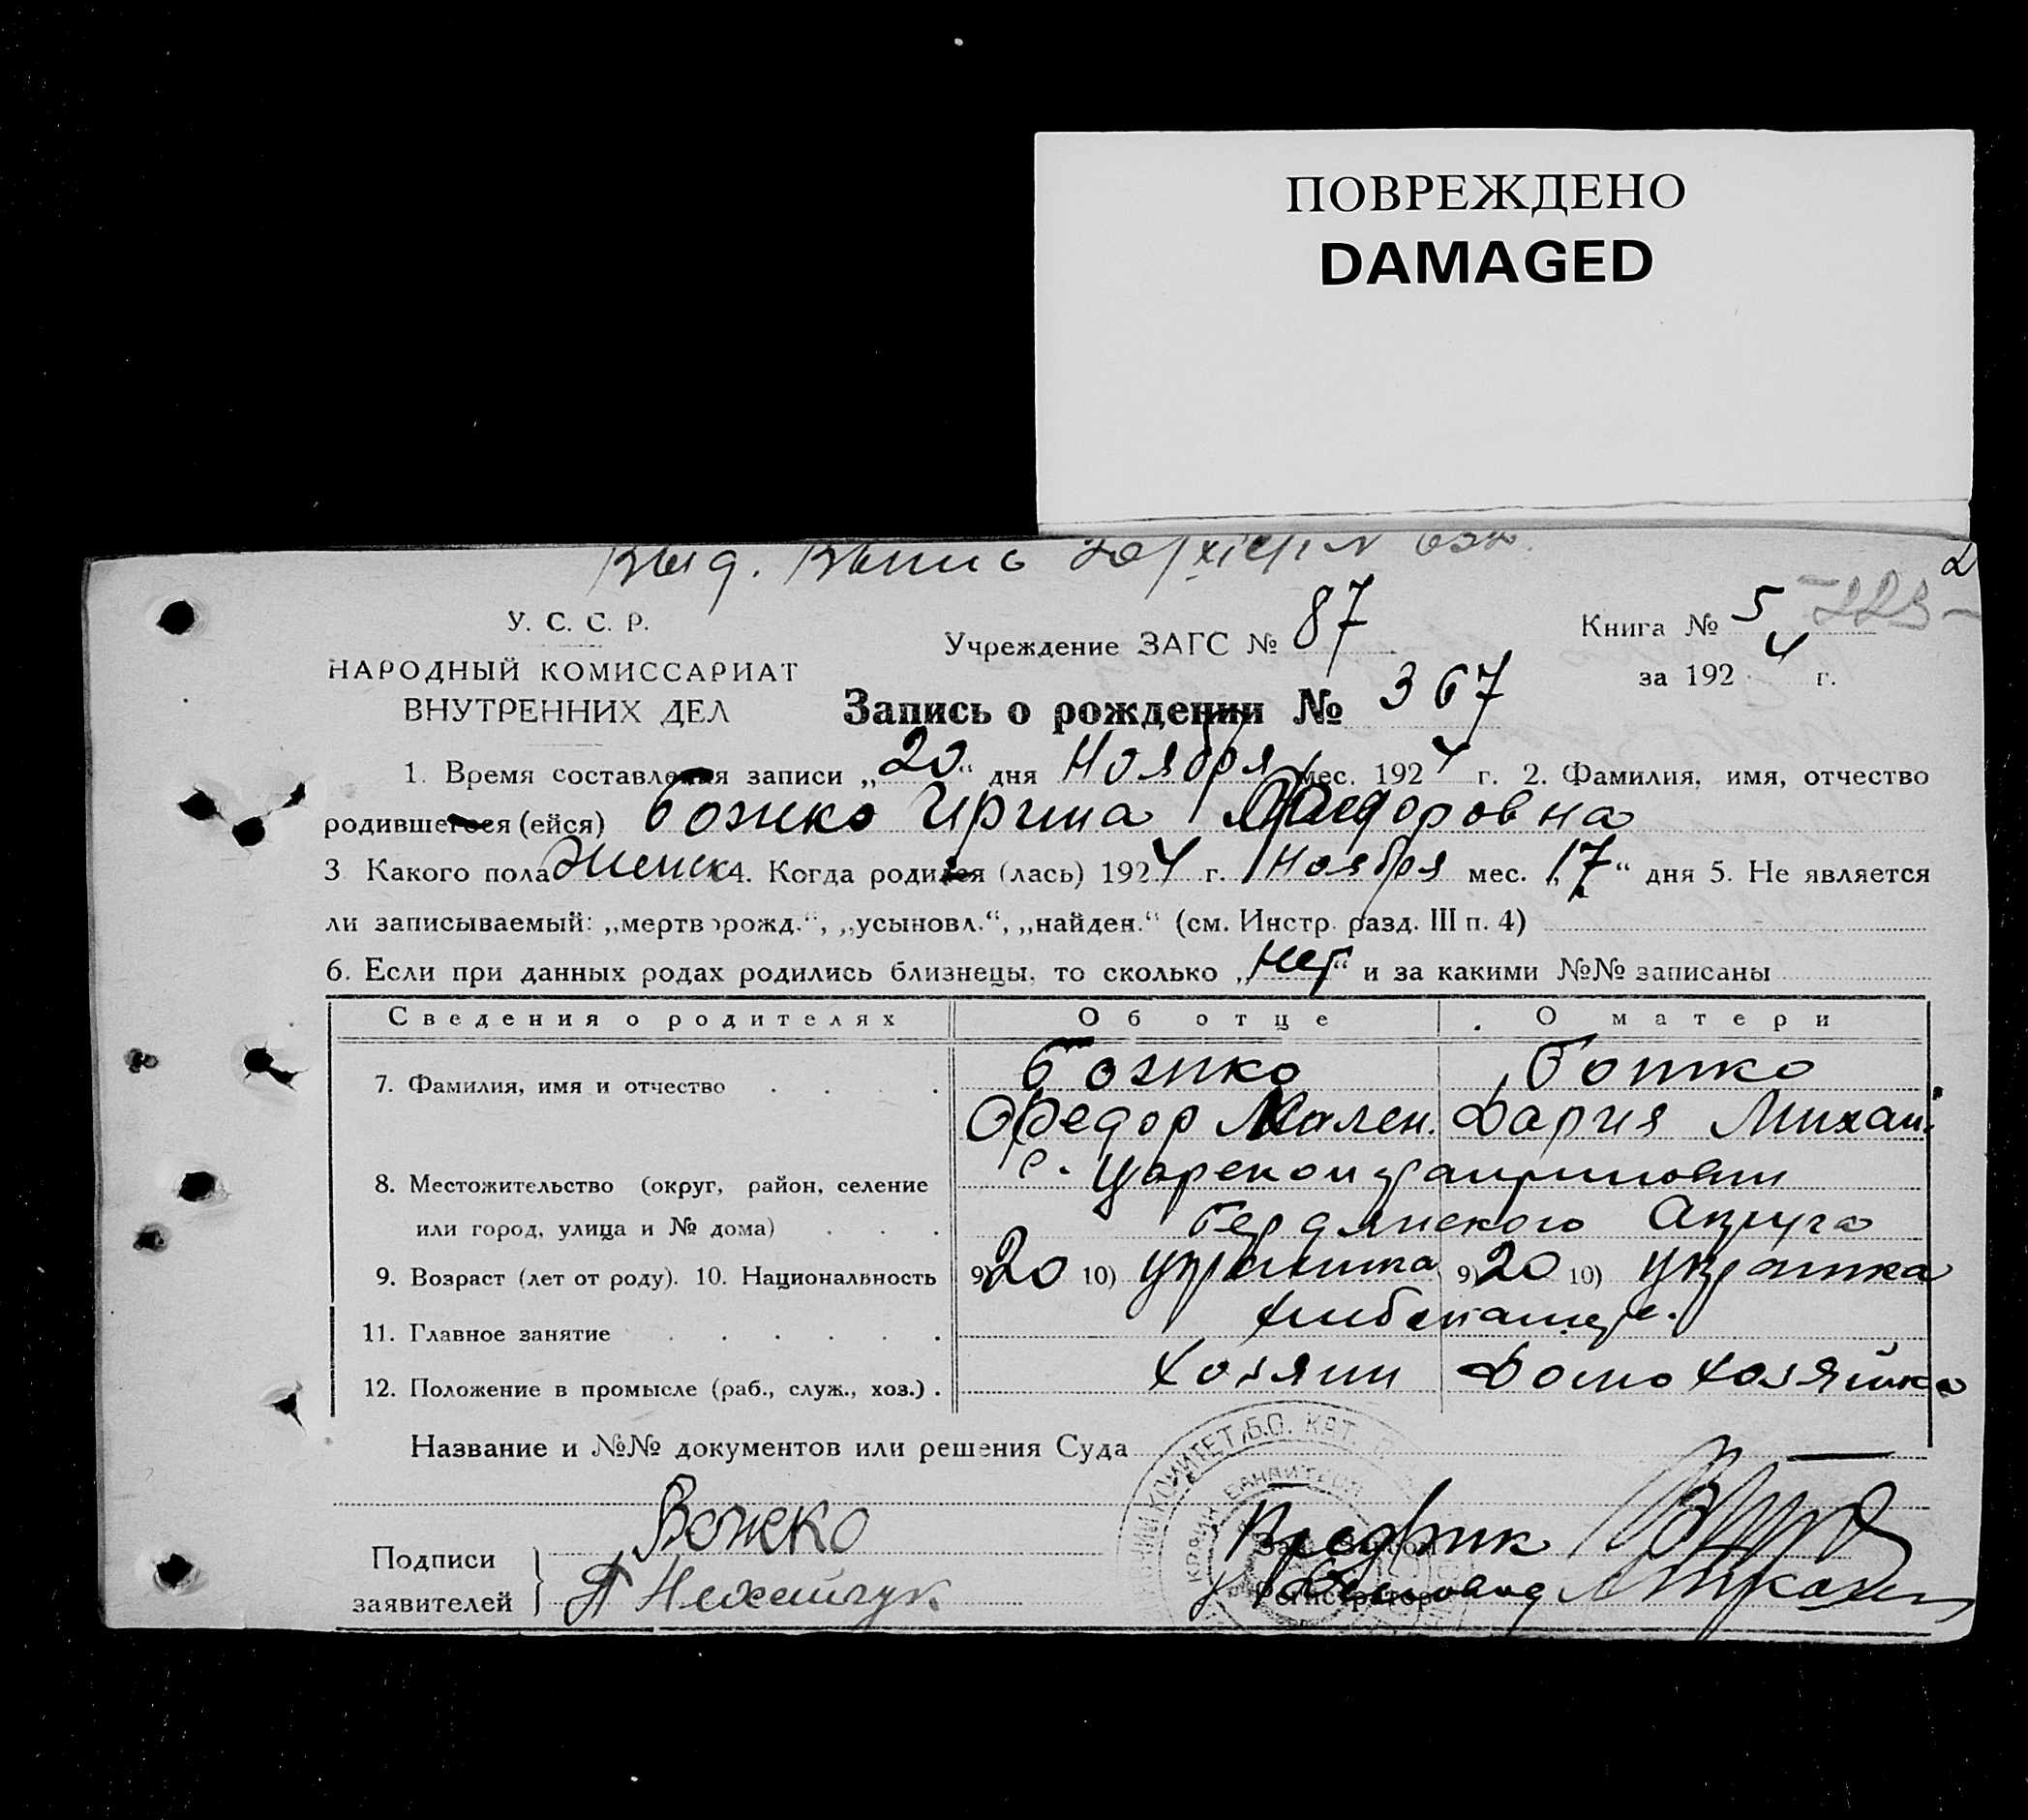 ПОВРЕЖДЕНО
DAMAGED
Выд. Выпись
2
У. С. С. Р.
НАРОДНЫЙ КОМИССАРИАТ
ВНУТРЕННИХ ДЕЛ
Учреждение ЗАГС № 87
Книга № 5 -223-
за 1924 г.
Запись о рождении № 367
1. Время составления записи „20“ дня Ноября мес. 1924 г. 2. Фамилия, имя, отчество
родившегося (ейся) Божко Ирина Федоровна
3 Какого пола Женск 4. Когда родился (лась) 1924 г. Ноября мес. „17“ дня 5. Не является
ли записываемый: „мертворожд.“, „усыновл.“, „найден.“ (см. Инстр. разд. III п. 4)
6. Если при данных родах родились близнецы, то сколько „нет“ и за какими №№ записаны
Сведения о родителях Об отце О матери
7. Фамилия, имя и отчество Божко Божко
Федор Дария Михай
8. Местожительство (округ, район, селение с.
или город, улица и № дома) Бердянского Округа
9. Возраст (лет от роду). 10. Национальность 9) 20 10) 9) 20 10)
11. Главное занятие хлебопашец.
12. Положение в промысле (раб., служ., хоз.) хозяин Домохозяйка
Название и №№ документов или решения Суда
Подписи заявителей
Божко
Регистратор